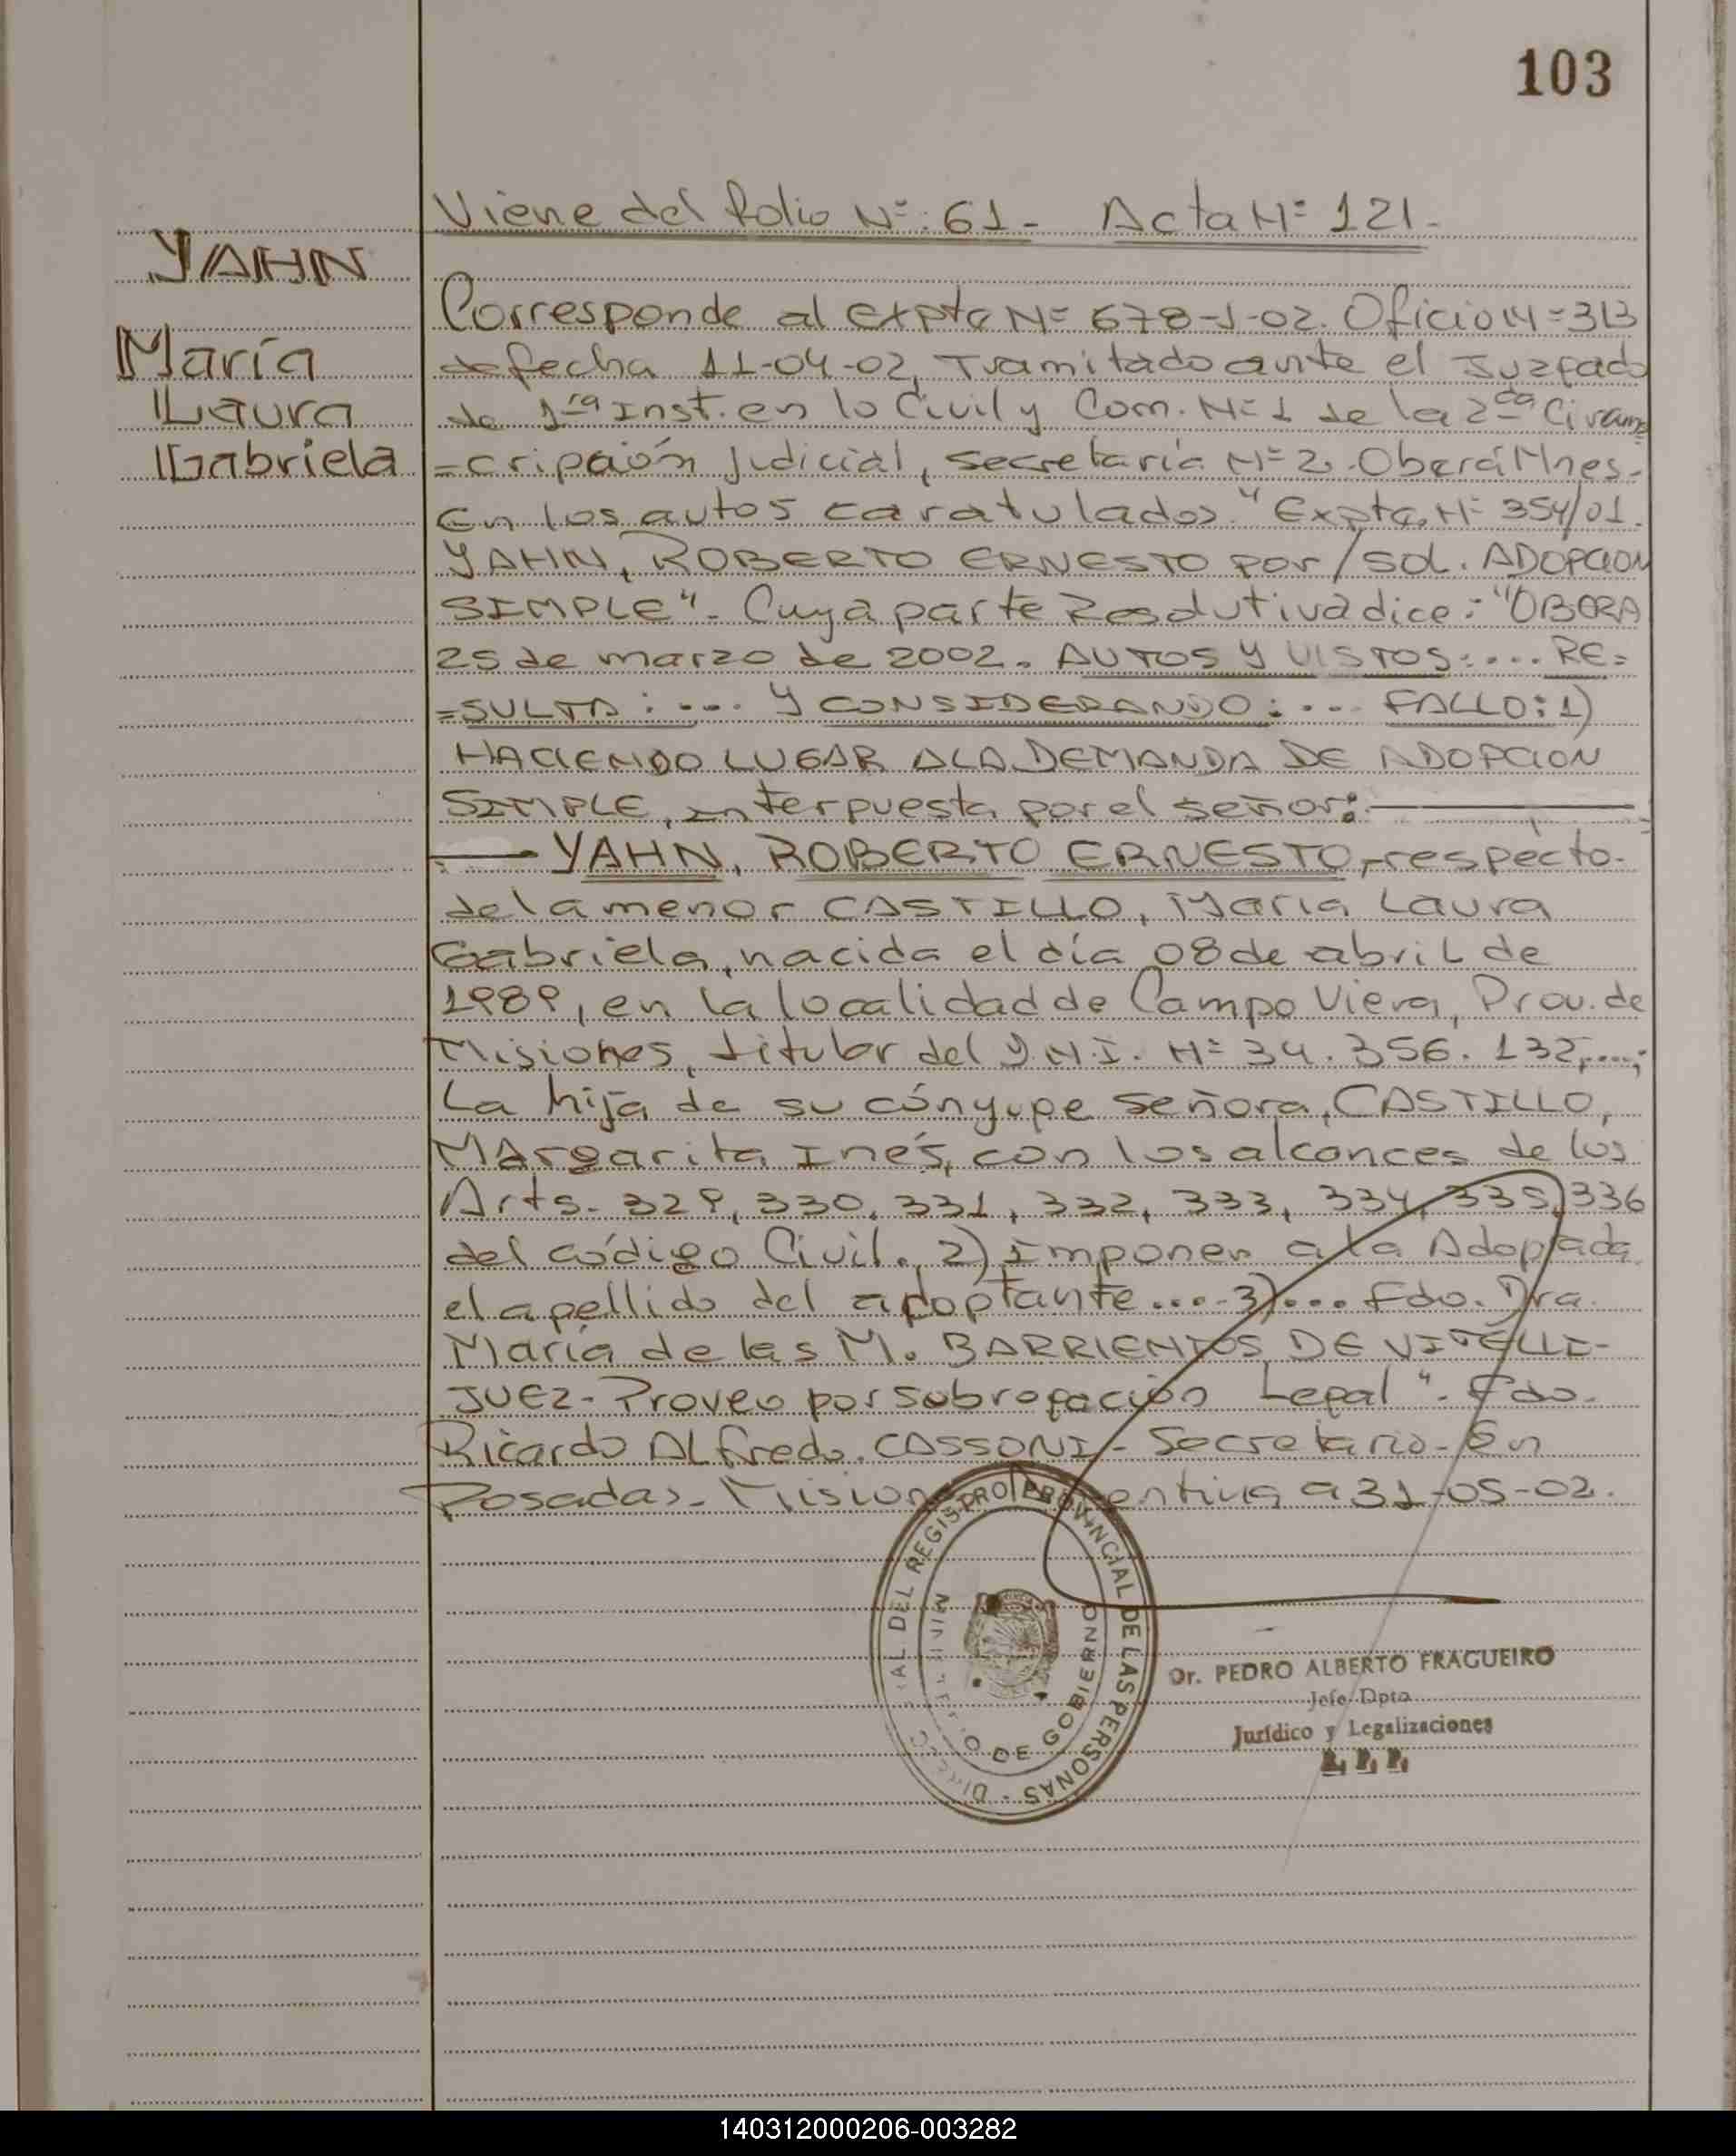 103
Viene del folio Nº: 61- Acta Nº 121-
YAHN
María
Laura
Gabriela
Corresponde al Expte Nº 678-J-02. Oficio Nº 313
de fecha 11-04-02, Tramitado ante el Juzgado
de 1ra Inst. en lo Civil y Com. Nº 1 de la 2da Circuns
=cripción Judicial, Secretaría Nº 2. Oberá Mnes.
En los autos caratulados "Expte. Nº 354/01.
YAHN, ROBERTO ERNESTO por/sol. ADOPCION
SIMPLE". Cuya parte Resolutiva dice: "OBERA
25 de marzo de 2002. AUTOS Y VISTOS:.... RE=
=SULTA:.... Y CONSIDERANDO:.... FALLO: 1)
HACIENDO LUGAR A LA DEMANDA DE ADOPCION
SIMPLE, interpuesta por el señor:
YAHN, ROBERTO ERNESTO, respecto
de la menor CASTILLO, María Laura
Gabriela, nacida el día 08 de abril de
1989, en la localidad de Campo Viera, Prov. de
Misiones, titular del D.N.I. Nº 34.356.132,....;
La hija de su cónyuge señora, CASTILLO,
Margarita Inés, con los alcances de los
Arts. 329, 330, 331, 332, 333, 334, 335, 336
del código Civil. 2) Imponer a la Adoptada
el apellido del adoptante....3).... Fdo. Dra.
María de las M. BARRIENTOS DE VITELLI-
JUEZ- Proveo por subrogación Legal". Fdo.
Ricardo Alfredo. CASSONI- Secretario- En
Posadas- Mision entina a 31-05-02.
DEL REGISTRO PROVINCIAL DE LAS PERSONAS
DE GOBIERNO
Dr. PEDRO ALBERTO FRAGUEIRO
Jefe Dpto
Jurídico y Legalizaciones
R. P. P.
140312000206-003282